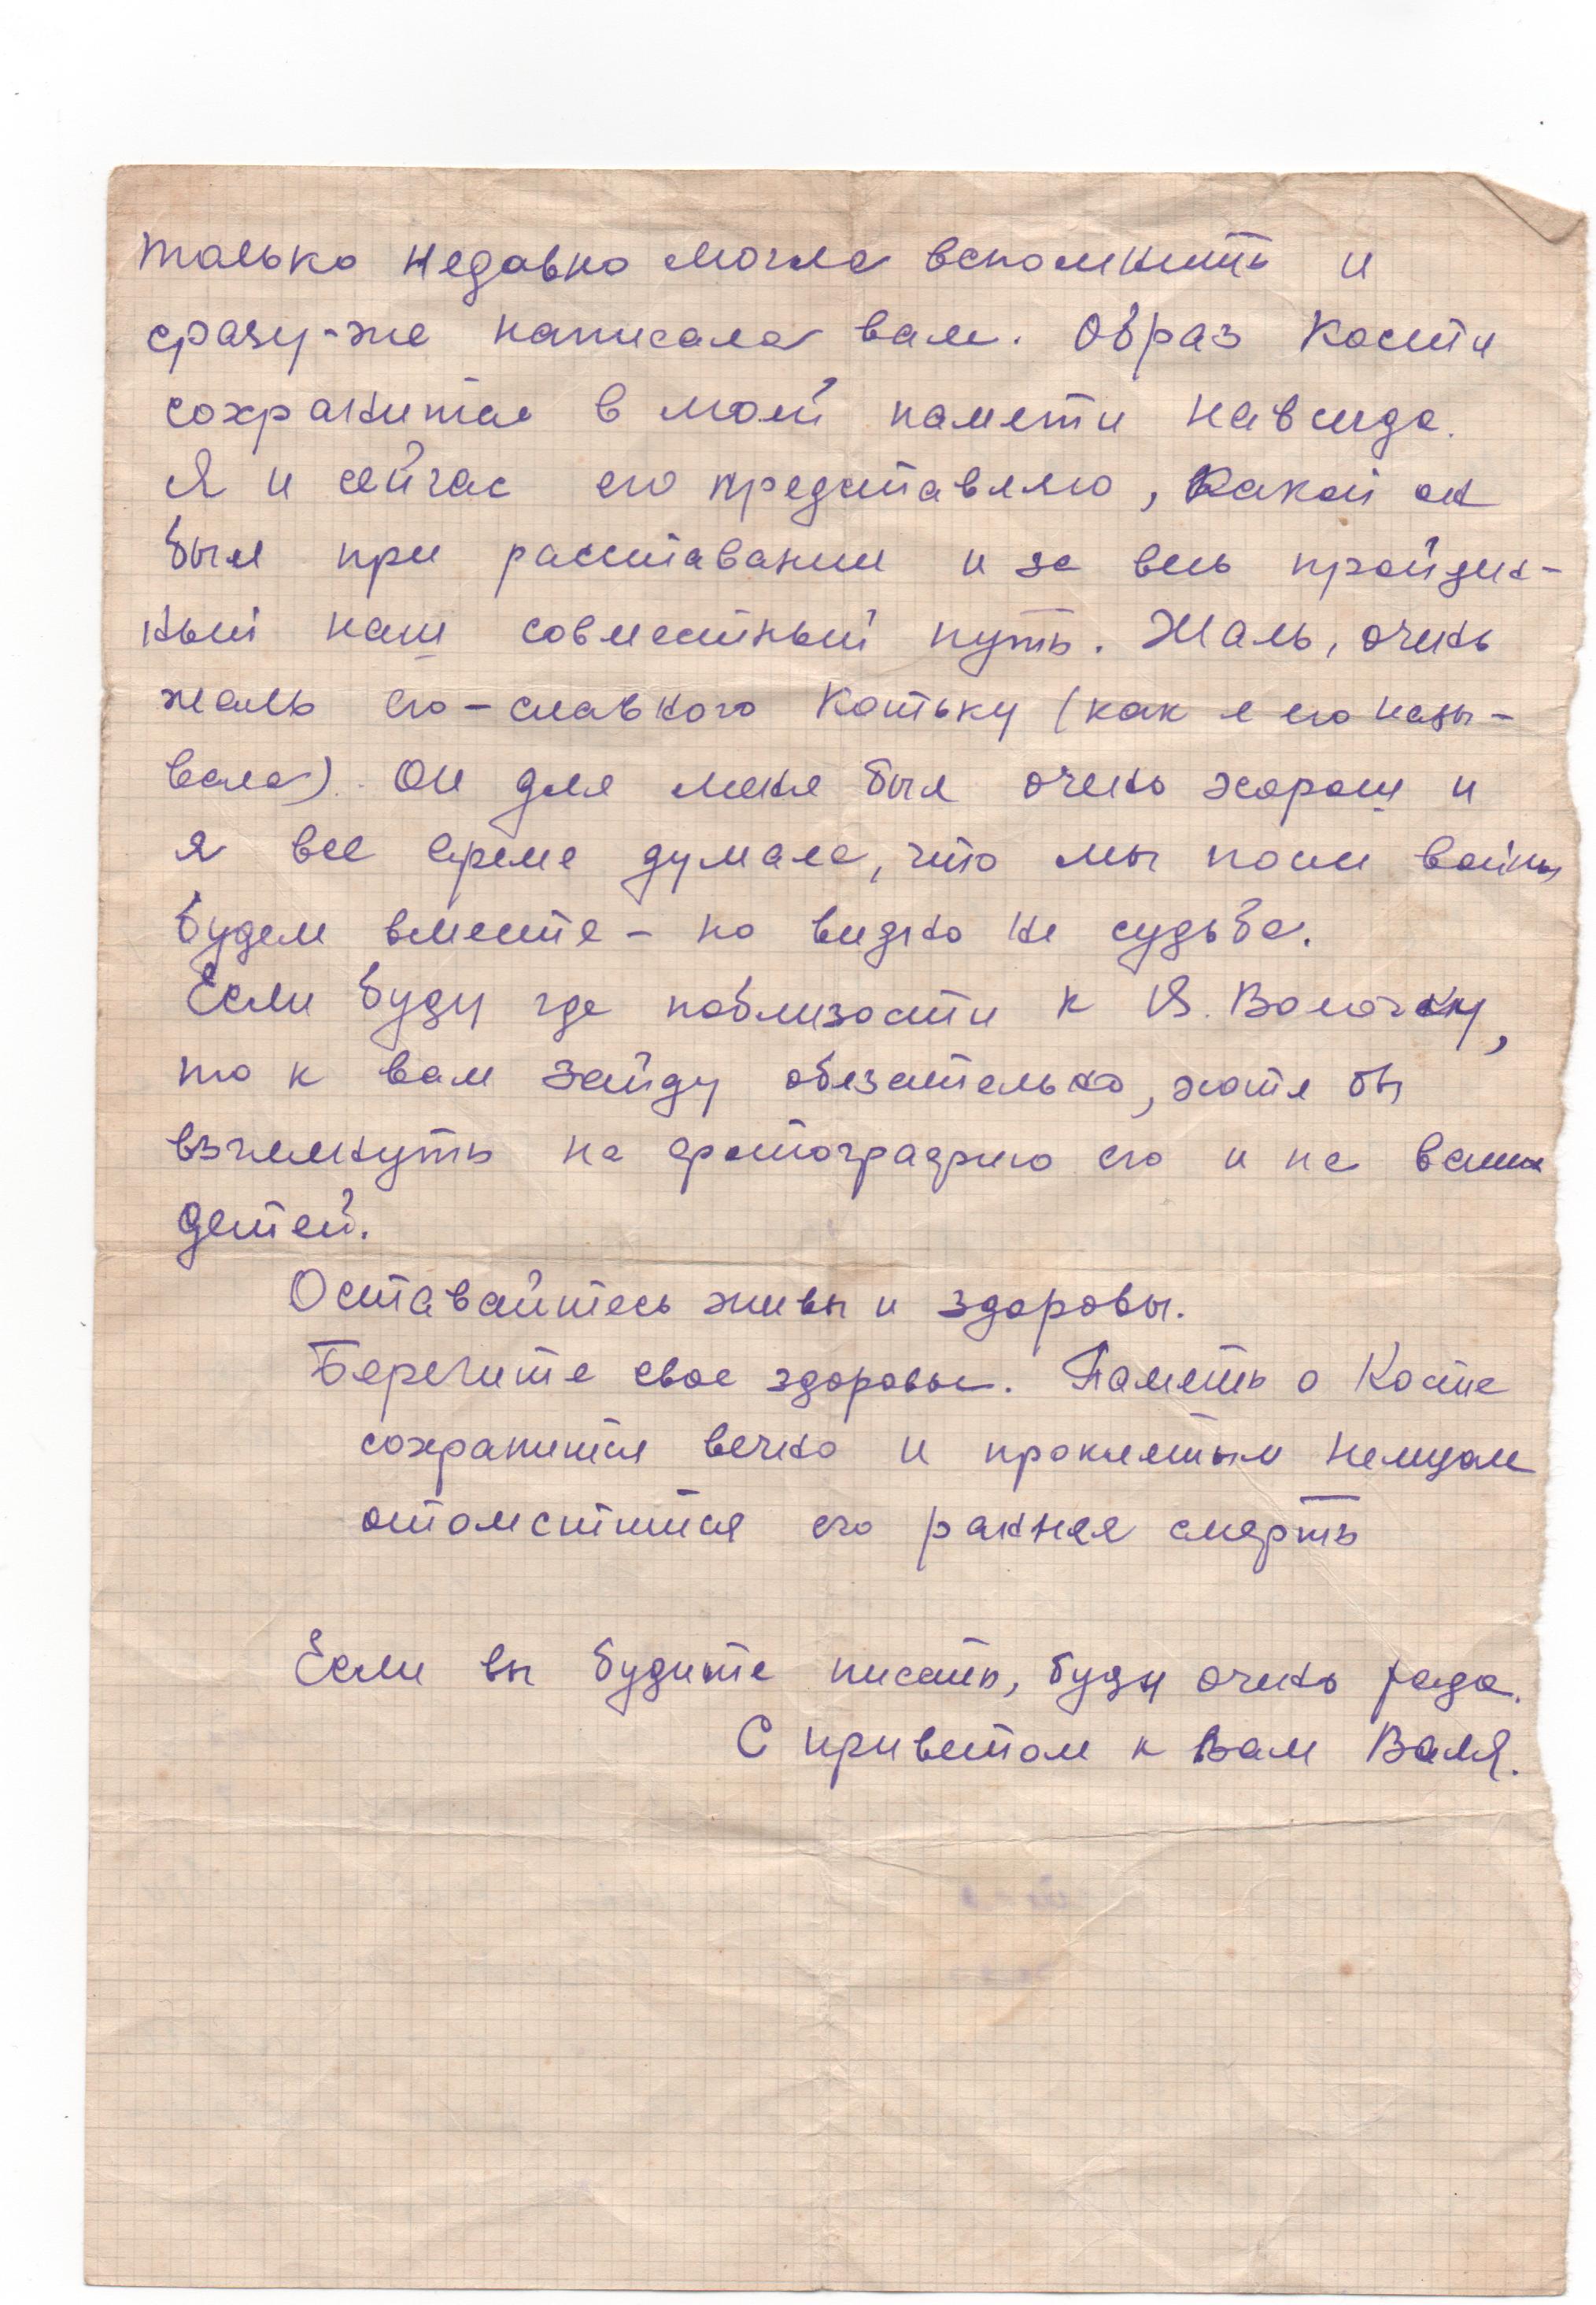 только недавно могла вспомнить и
сразу-же написала вам. Образ Кости
сохранится в моей памяти навсегда.
Я и сейчас его представляю, какой он
был при расставании и за весь пройден-
ный наш совместный путь. Жаль, очень
жаль его - славного Котьку (как я его назы-
вала). Он для меня был очень хорош и
я все время думала, что мы после войны
будем вместе - но видно не судьба.
Если буду где поблизости к В. Волочку,
то к вам зайду обязательно, хотя бы
взглянуть на фотографию его и на ваших
детей.
Оставайтесь живы и здоровы.
Берегите свое здоровье. Память о Косте
сохранится вечно и проклятым немцам
отомстится его ранняя смерть
Если вы будите писать, буду очень рада.
С приветом к Вам Валя.